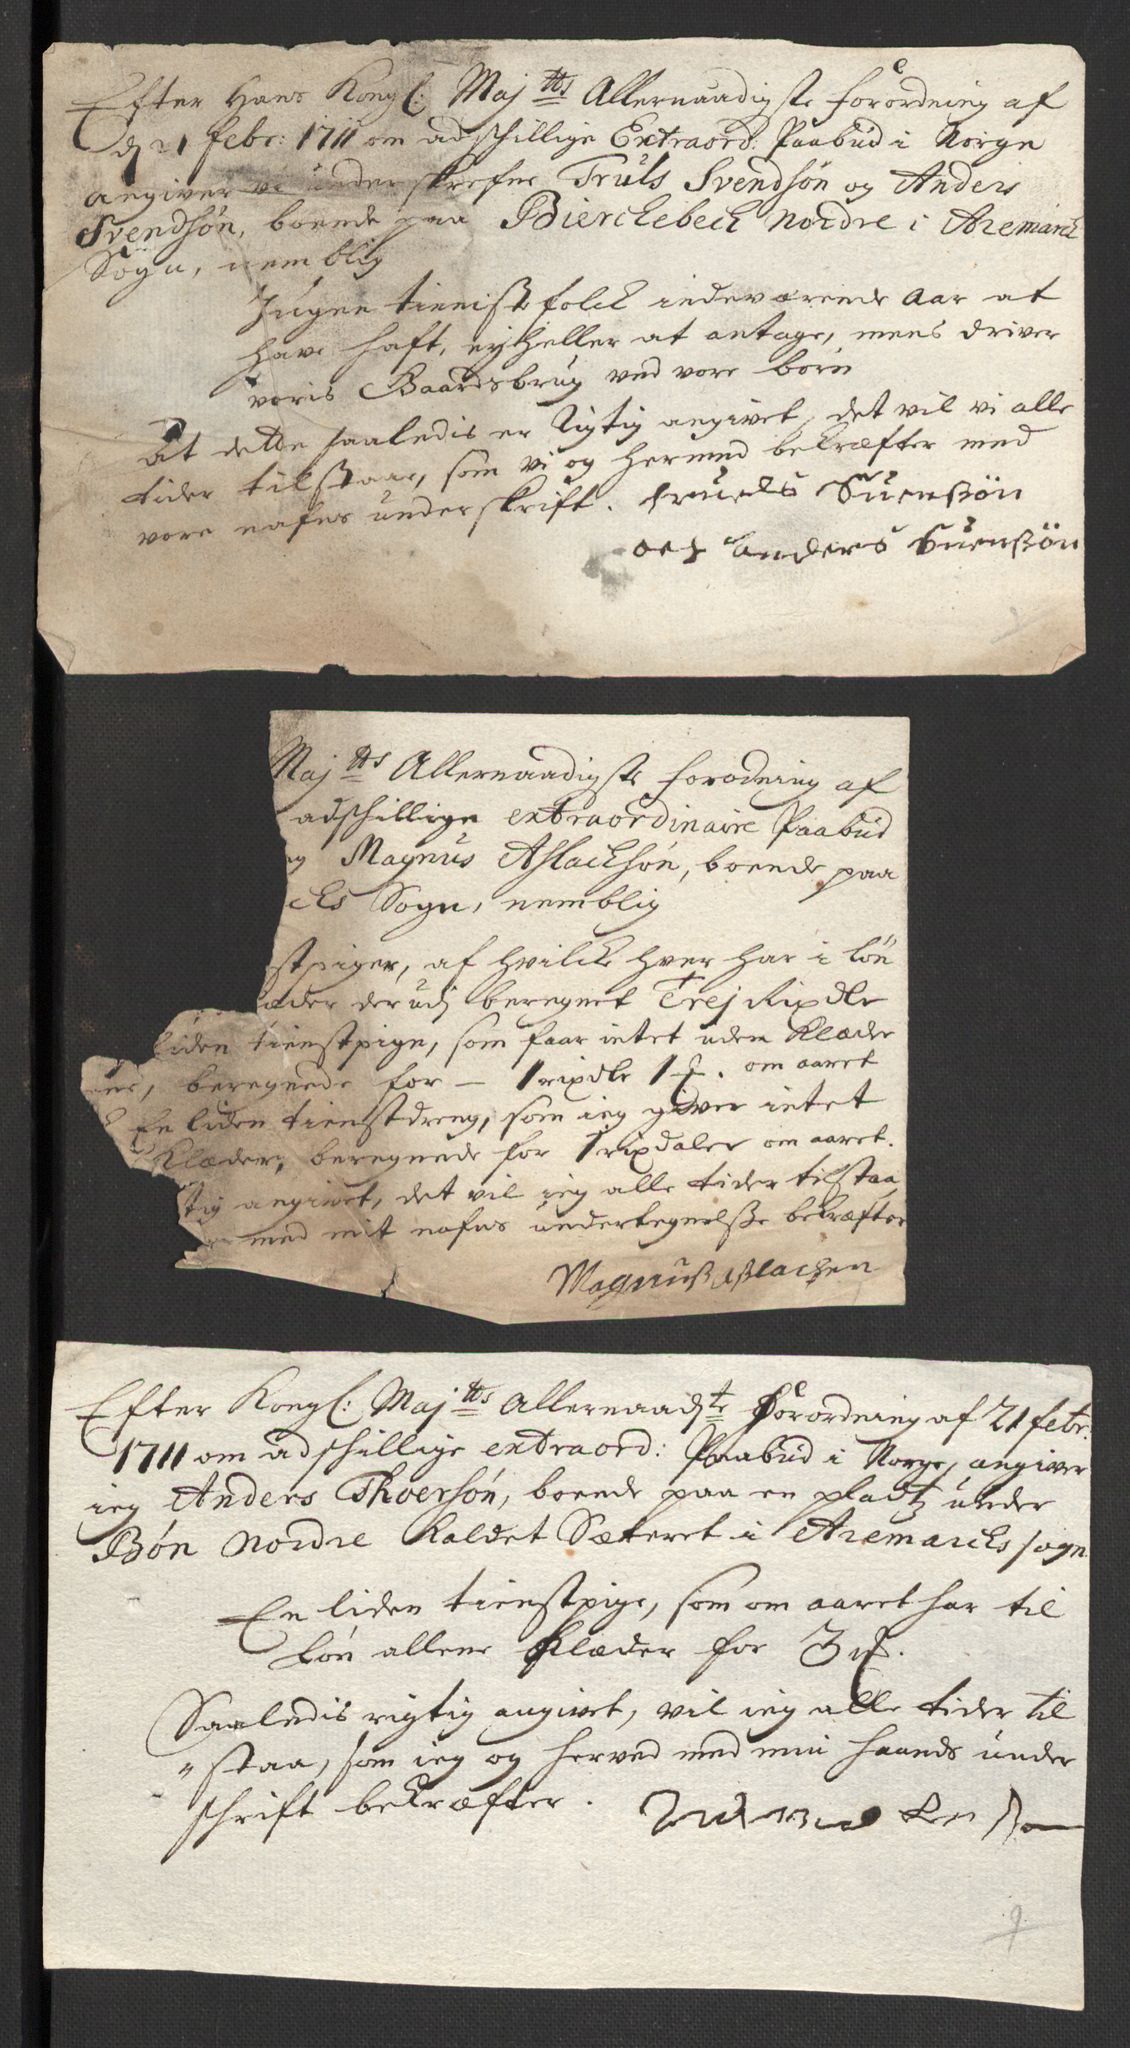 Efter Hans Kongl: Maj:tts Allernaadigste forordning af
d 21 febr: 1711 om adschillige Extraord: Paabud i Norge
angiver vi underskrefne Truls Svendsøn og Anders
Svendsøn, boende paa Bierchebech nordre i Aremarch
Sogn, nemblig
Ingen tienistefolch indeværende Aar at
have haft, ej heller at antage, mens driver
voris Gaardsbrug ved vore børn
At dette saaledis er rigtig angivet, det vil vi alle
tider tilstaae, som vi og hermed bekræfter med
vore nafns underskrift. Truels Suensøn
och Anders Suensøn
Maj:tts Allernaadigste forordning af
adschillige extraordinaire Paabud
eg Magnus Aslachsøn, boende paa
chs Sogn, nemblig
stpiger, af hvilche hver har i løn
æder derudj beregnet Trej Rixdlr
liden tienstpige, som faar intet uden klæder
ene, beregnede for - 1 rixdlr 1 . om aaret
En liden tienstdreng, som ieg giver intet
Klæder, beregnede for 1 rixdaler om aaret.
tig angivet, det vil ieg alle tider tilstaa,
med mit nafns undertegnelse bekræfter
Magnus Aslachsen
Efter Kongl: Maj:tts allernaadste Forordning af 21 febr:
1711 om adschillige extraord: Paabud i Norge, angiver
ieg Anders Thoersøn, boende paa en pladtz under
Bøn Nordre kaldet Sæteret i Aremarchs sogn
En liden tienstpige, som om aaret har til
Løn allene Klæder for 3
Saaledis rigtig angivet, vil ieg alle tider til
"staa, som ieg og herved med min haands under
schrift bekræfter.
9